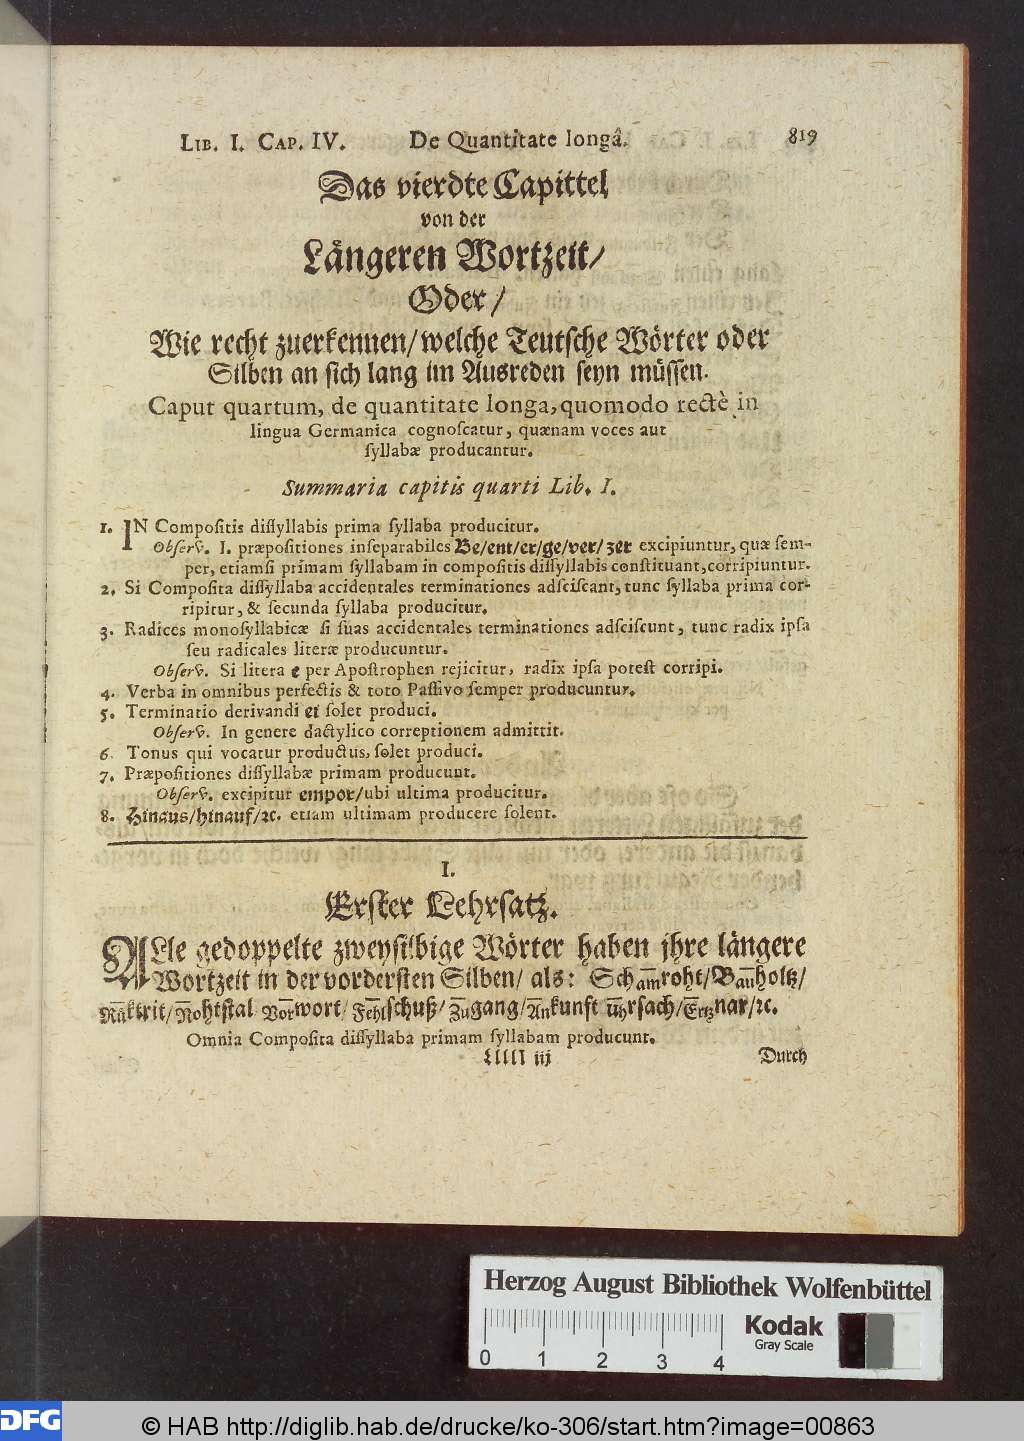 LIB. I. CAP. IV. De Quantitate longâ. 819
Das vierdte Capittel
von der
Längeren Wortzeit/
Oder/
Wie recht zuerkennen/welche Teutsche Wörter oder
Silben an sich lang im Ausreden seyn müssen.
Caput quartum, de quantitate longa, quomodo rectè in
lingua Germanica cognoſcatur, quænam voces aut
ſyllabæ producantur.
Summaria capitis quarti Lib. I.
1. IN Compoſitis diſſyllabis prima ſyllaba producitur.
Obſerv. I. præpoſitiones inſeparabiles Be/ent/er/ge/ver/zer excipiuntur, quæ ſem-
per, etiamſi primam ſyllabam in compoſitis diſſyllabis conſtituant, corripiuntur.
2. Si Compoſita diſſyllaba accidentales terminationes adſciſcant, tunc ſyllaba prima cor-
ripitur, & ſecunda ſyllaba producitur.
3. Radices monoſyllabicæ ſi ſuas accidentales terminationes adſciſcunt, tunc radix ipſa
ſeu radicales literæ producuntur.
Obſerv. Si litera e per Apoſtrophen rejicitur, radix ipſa poteſt corripi.
4. Verba in omnibus perfectis & toto Paſſivo ſemper producuntur.
5. Terminatio derivandi ei ſolet produci.
Obſerv. In genere dactylico correptionem admittit.
6. Tonus qui vocatur productus, ſolet produci.
7. Præpoſitiones diſſyllabæ primam producunt.
Obſerv. excipitur empor/ubi ultima producitur.
8. Hinaus/hinauf/ꝛc. etiam ultimam producere ſolent.
I.
Erster Lehrsatz.
ALle gedoppelte zweysilbige Wörter haben jhre längere
Wortzeit in der vordersten Silben/ als: Schamroht/Bauholtz/
Rüktrit/Nohtstal/Vorwort/Fehlschuß/Zugang/Ankunft/Uhrsach/Ertznar/ꝛc.
Omnia Compoſita diſſyllaba primam ſyllabam producunt.
Lllll iij Durch
Herzog August Bibliothek Wolfenbüttel
Kodak
Gray Scale
0 1 2 3 4
DFG © HAB http://diglib.hab.de/drucke/ko-306/start.htm?image=00863